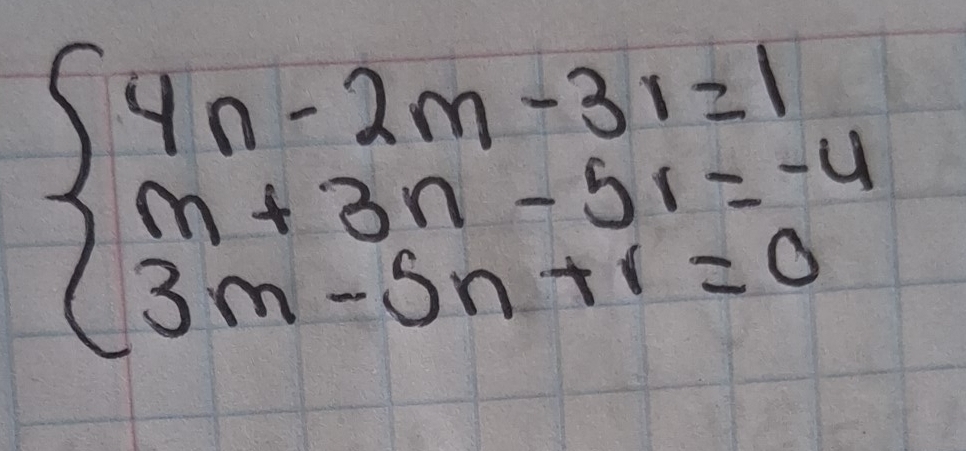 4n - 2m - 3r = 1
m + 3n - 5r = -4
3m - 5n + r = 0